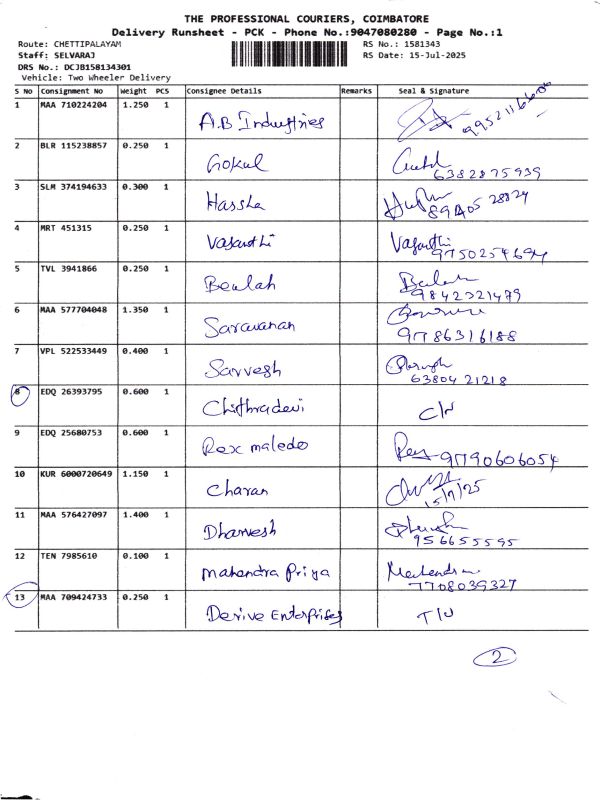 THE PROFESSIONAL COURIERS, COIMBATORE
Delivery Runsheet - PCK - Phone No.:9047080280 - Page No.:1
Route: CHETTIPALAYAM RS No.: 1581343
Staff: SELVARAJ RS Date: 15-Jul-2025
DRS No.: DCJB158134301
Vehicle: Two Wheeler Delivery
S No Consignment No Weight PCS Consignee Details Remarks Seal & Signature
1 MAA 710224204 1.250 1 A.B Industries
2 BLR 115238857 0.250 1 Gokul 6382875939
3 SLM 374194633 0.300 1 Harsha
4 MRT 451315 0.250 1 Vasanthi Vasanthi
9750254694
5 TVL 3941866 0.250 1 Beulah
9842321479
6 MAA 577704048 1.350 1 Saravanan
9786316188
7 VPL 522533449 0.400 1 Sarvesh
6380421218
8 EDQ 26393795 0.600 1 Chithradevi C/N
9 EDQ 25680753 0.600 1 Rex maledo Rex 9790606054
10 KUR 6000720649 1.150 1 Charan
15/7/25
11 MAA 576427097 1.400 1 Dharvesh
956655595
12 TEN 7985610 0.100 1 Mahandra Priya
7708039327
13 MAA 709424733 0.250 1 Derive Enterprises T/N
2